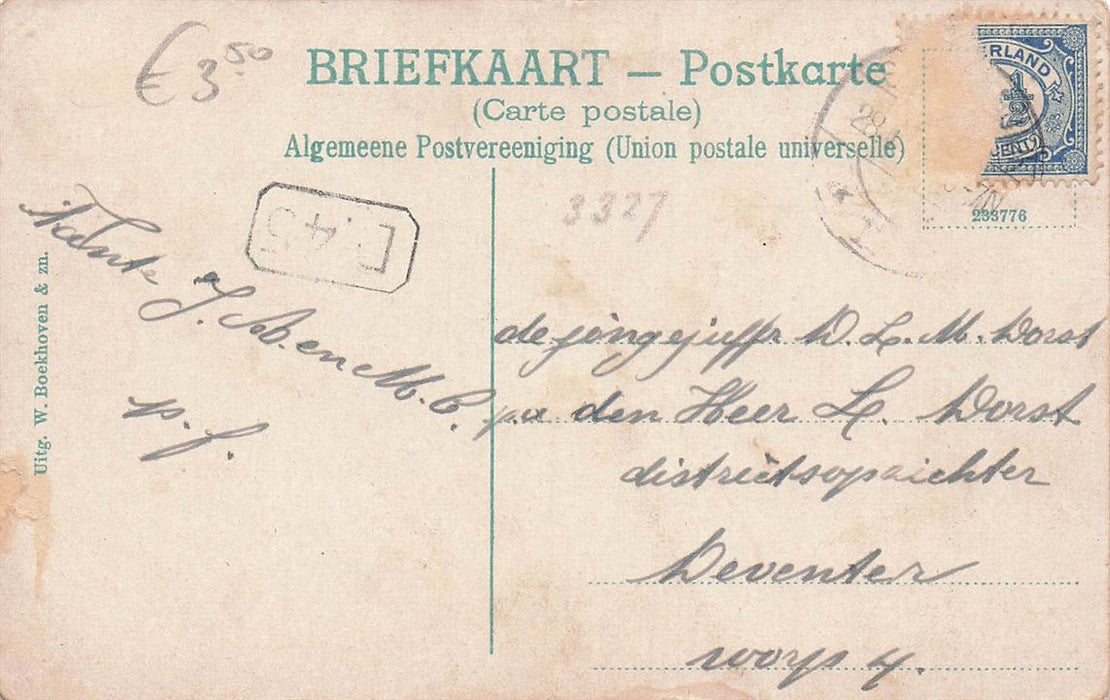 € 3.50
BRIEFKAART — Postkarte
(Carte postale)
Algemeene Postvereeniging (Union postale universelle)
ERLAND
1/2
CENT
28
233776
3327
D.45
Tante J. W. en M. C.
p. f.
Uitg. W. Boekhoven & zn.
de jongejuffr. D. L. M. Dorst
p/a den Heer L. Dorst
districtsopzichter
Deventer
worp 4.